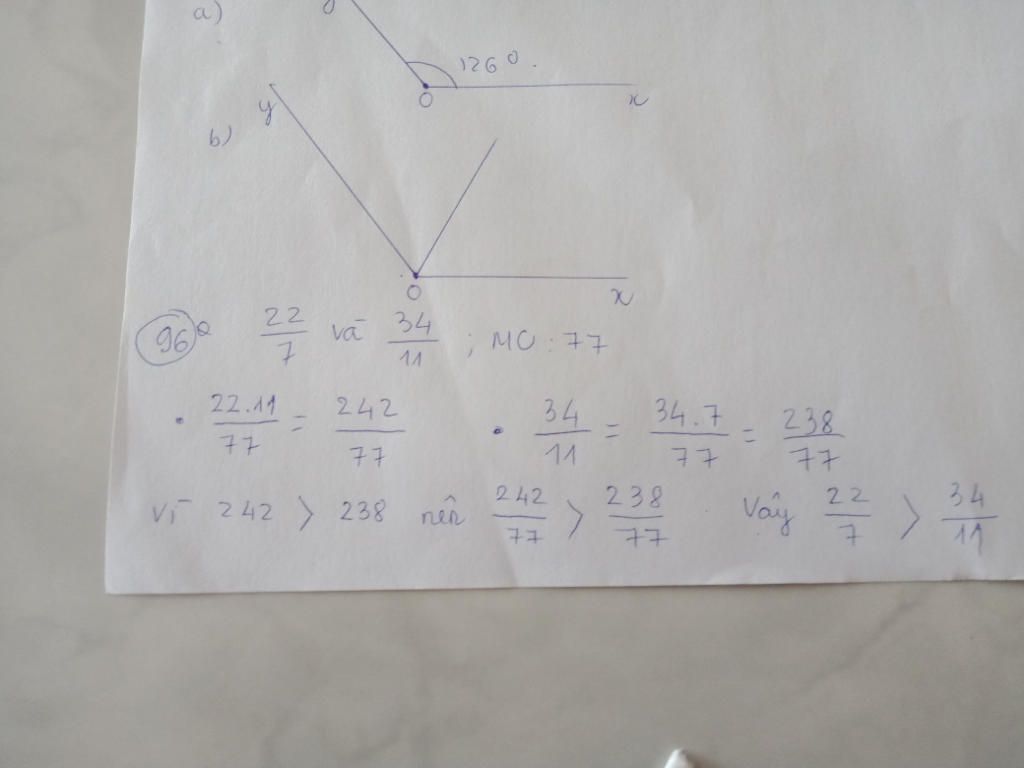 a)
y
126°.
O
x
y
b)
O
x
96 a 22/7 và 34/11 ; MC : 77
• 22.11/77 = 242/77 • 34/11 = 34.7/77 = 238/77
Vì 242 > 238 nên 242/77 > 238/77 Vậy 22/7 > 34/11